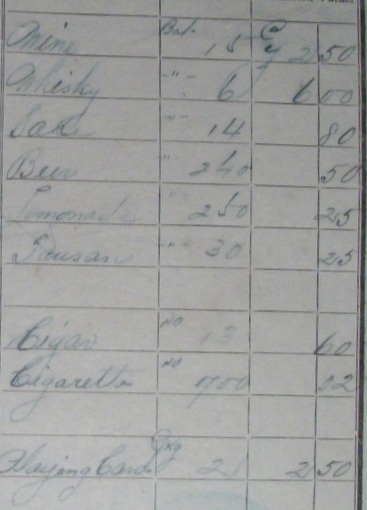 Wine Bot. 15 @ 2 50
Whisky " 6 6 00
Sake " 14 80
Beer " 240 50
Lemonade " 250 25
Tansan " 30 25
Cigar NO 13 60
Cigarette NO 700 02
Playing Cards Pkg 25 2 50